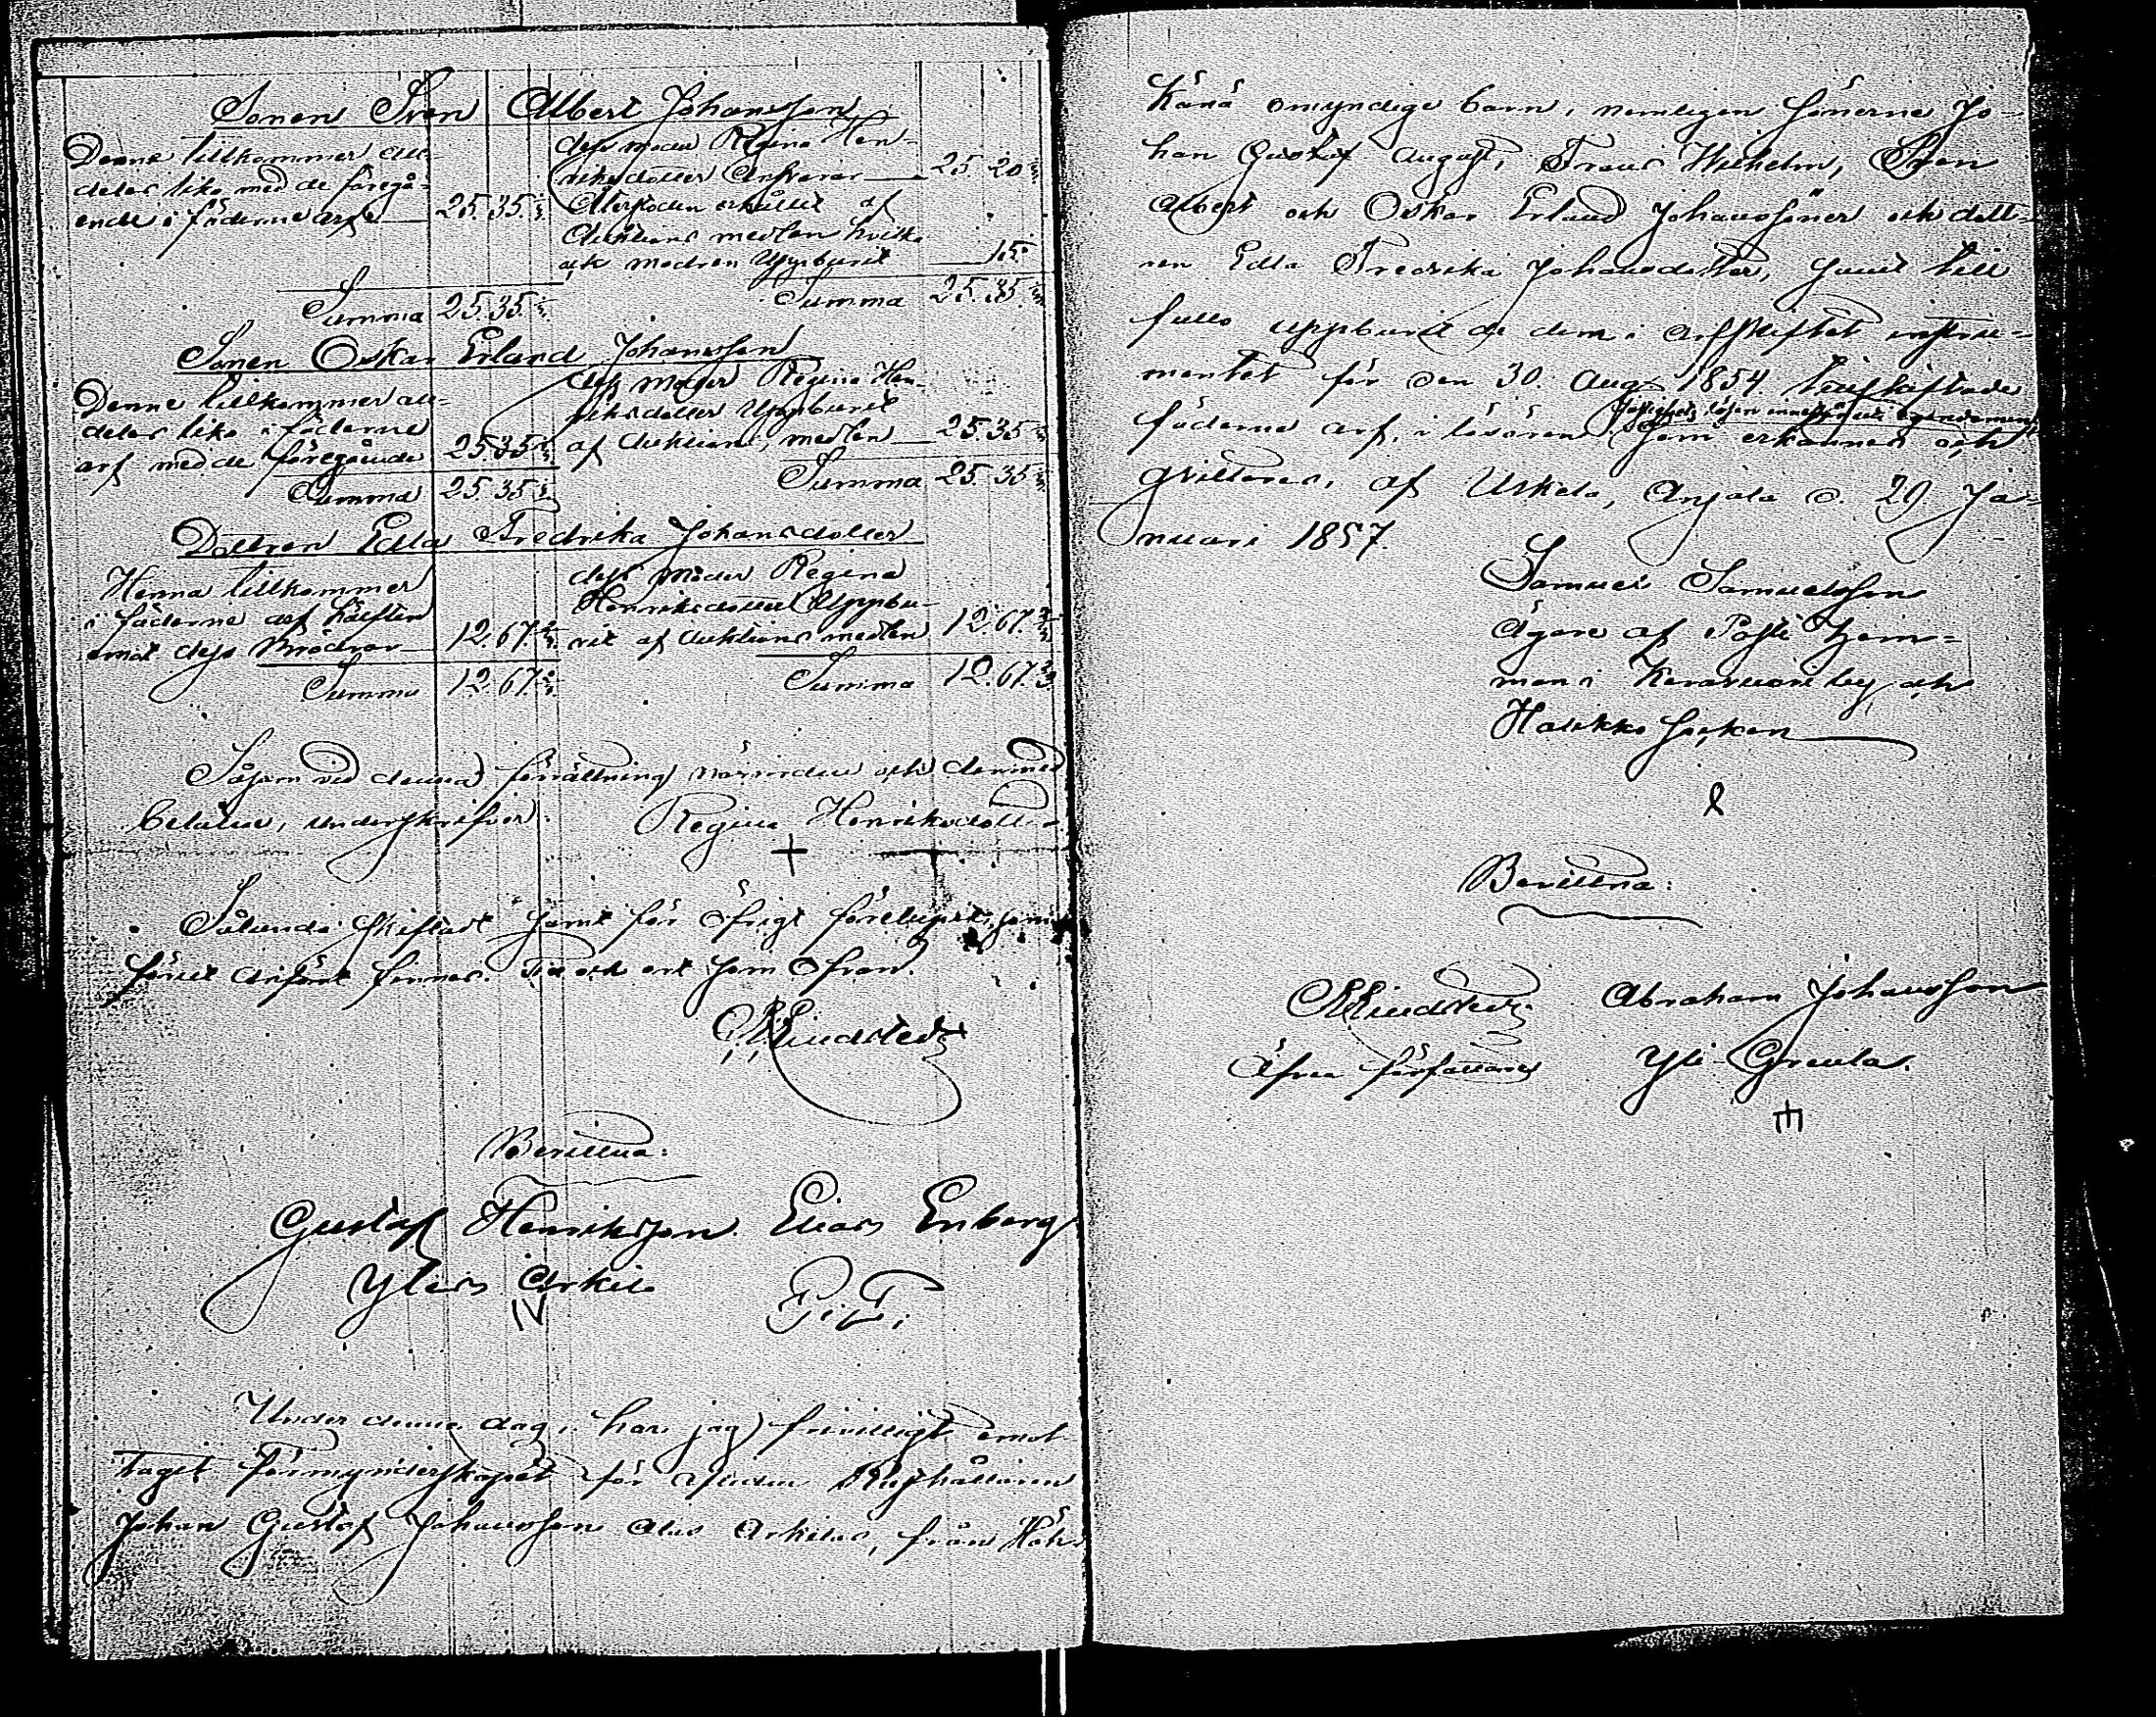 Sonen Sven Albert Johansson
Denne tillkommer all-
deles lika med de föregå-
ende i fäderne arf 25.35.
Summa 25.35.
dess moder Regina Hen-
riksdotter ansvarar 25.20
Återstoden erhållit af
Auktions medlen hvilka
ock modren Uppburit 15.
Summa 25.35.
Sonen Oskar Erland Johansson
Denne tillkommer all-
deles lika i fäderne
arf med de föregående 25.35
Summa 25.35
dess moder Regina Hen-
riksdotter Uppburit
af Auktions medlen 25.35
Summa 25.35
Dottren Edla Fredrika Johansdotter
Henna tillkommer
i fäderne arf hälften
emot dess Bröder 12.67.
Summa 12.67.
dess moder Regina
Henriksdotter Uppbu-
rit af Auktions medlen 12.67.
Summa 12.67.
Såsom vid denna förrättning närvarande och dermed
belåten, underskrifver. Regina Henriksdotter
Sålunda skiftadt samt för öfrigt föreluppit, som
förut anfördt finnes. Tid och ort som ofvan.
Lindstedt
Bevittna:
Gustaf Henriksson Elias Enberg
Arkila
Under denna dag, har jag frivilligt emot-
taget förmynderskapet för aflidne Rusthållaren
Johan Gustaf Johansson Arkilas, från Hök-
känä omyndige barn, nemligen sönerne Jo-
han Gustaf August, Frans Wilhelm, Sven
Albert och Oskar Erland Johanssöner och dott-
ren Edla Fredrika Johansdotter, samt till
fullo uppburit de dem i arfskiftet instru-
mentet för den 30. Aug. 1854
fäderne arf, i lösören som erkännes och
qvitteras, af Uskela, Anjala d. 29 Ja-
nuari 1857.
Samuel Samuelsson
Ägare af hem-
man i by, och
socken
Bevittna:
Lindstedt Abraham Johansson
författare Yli